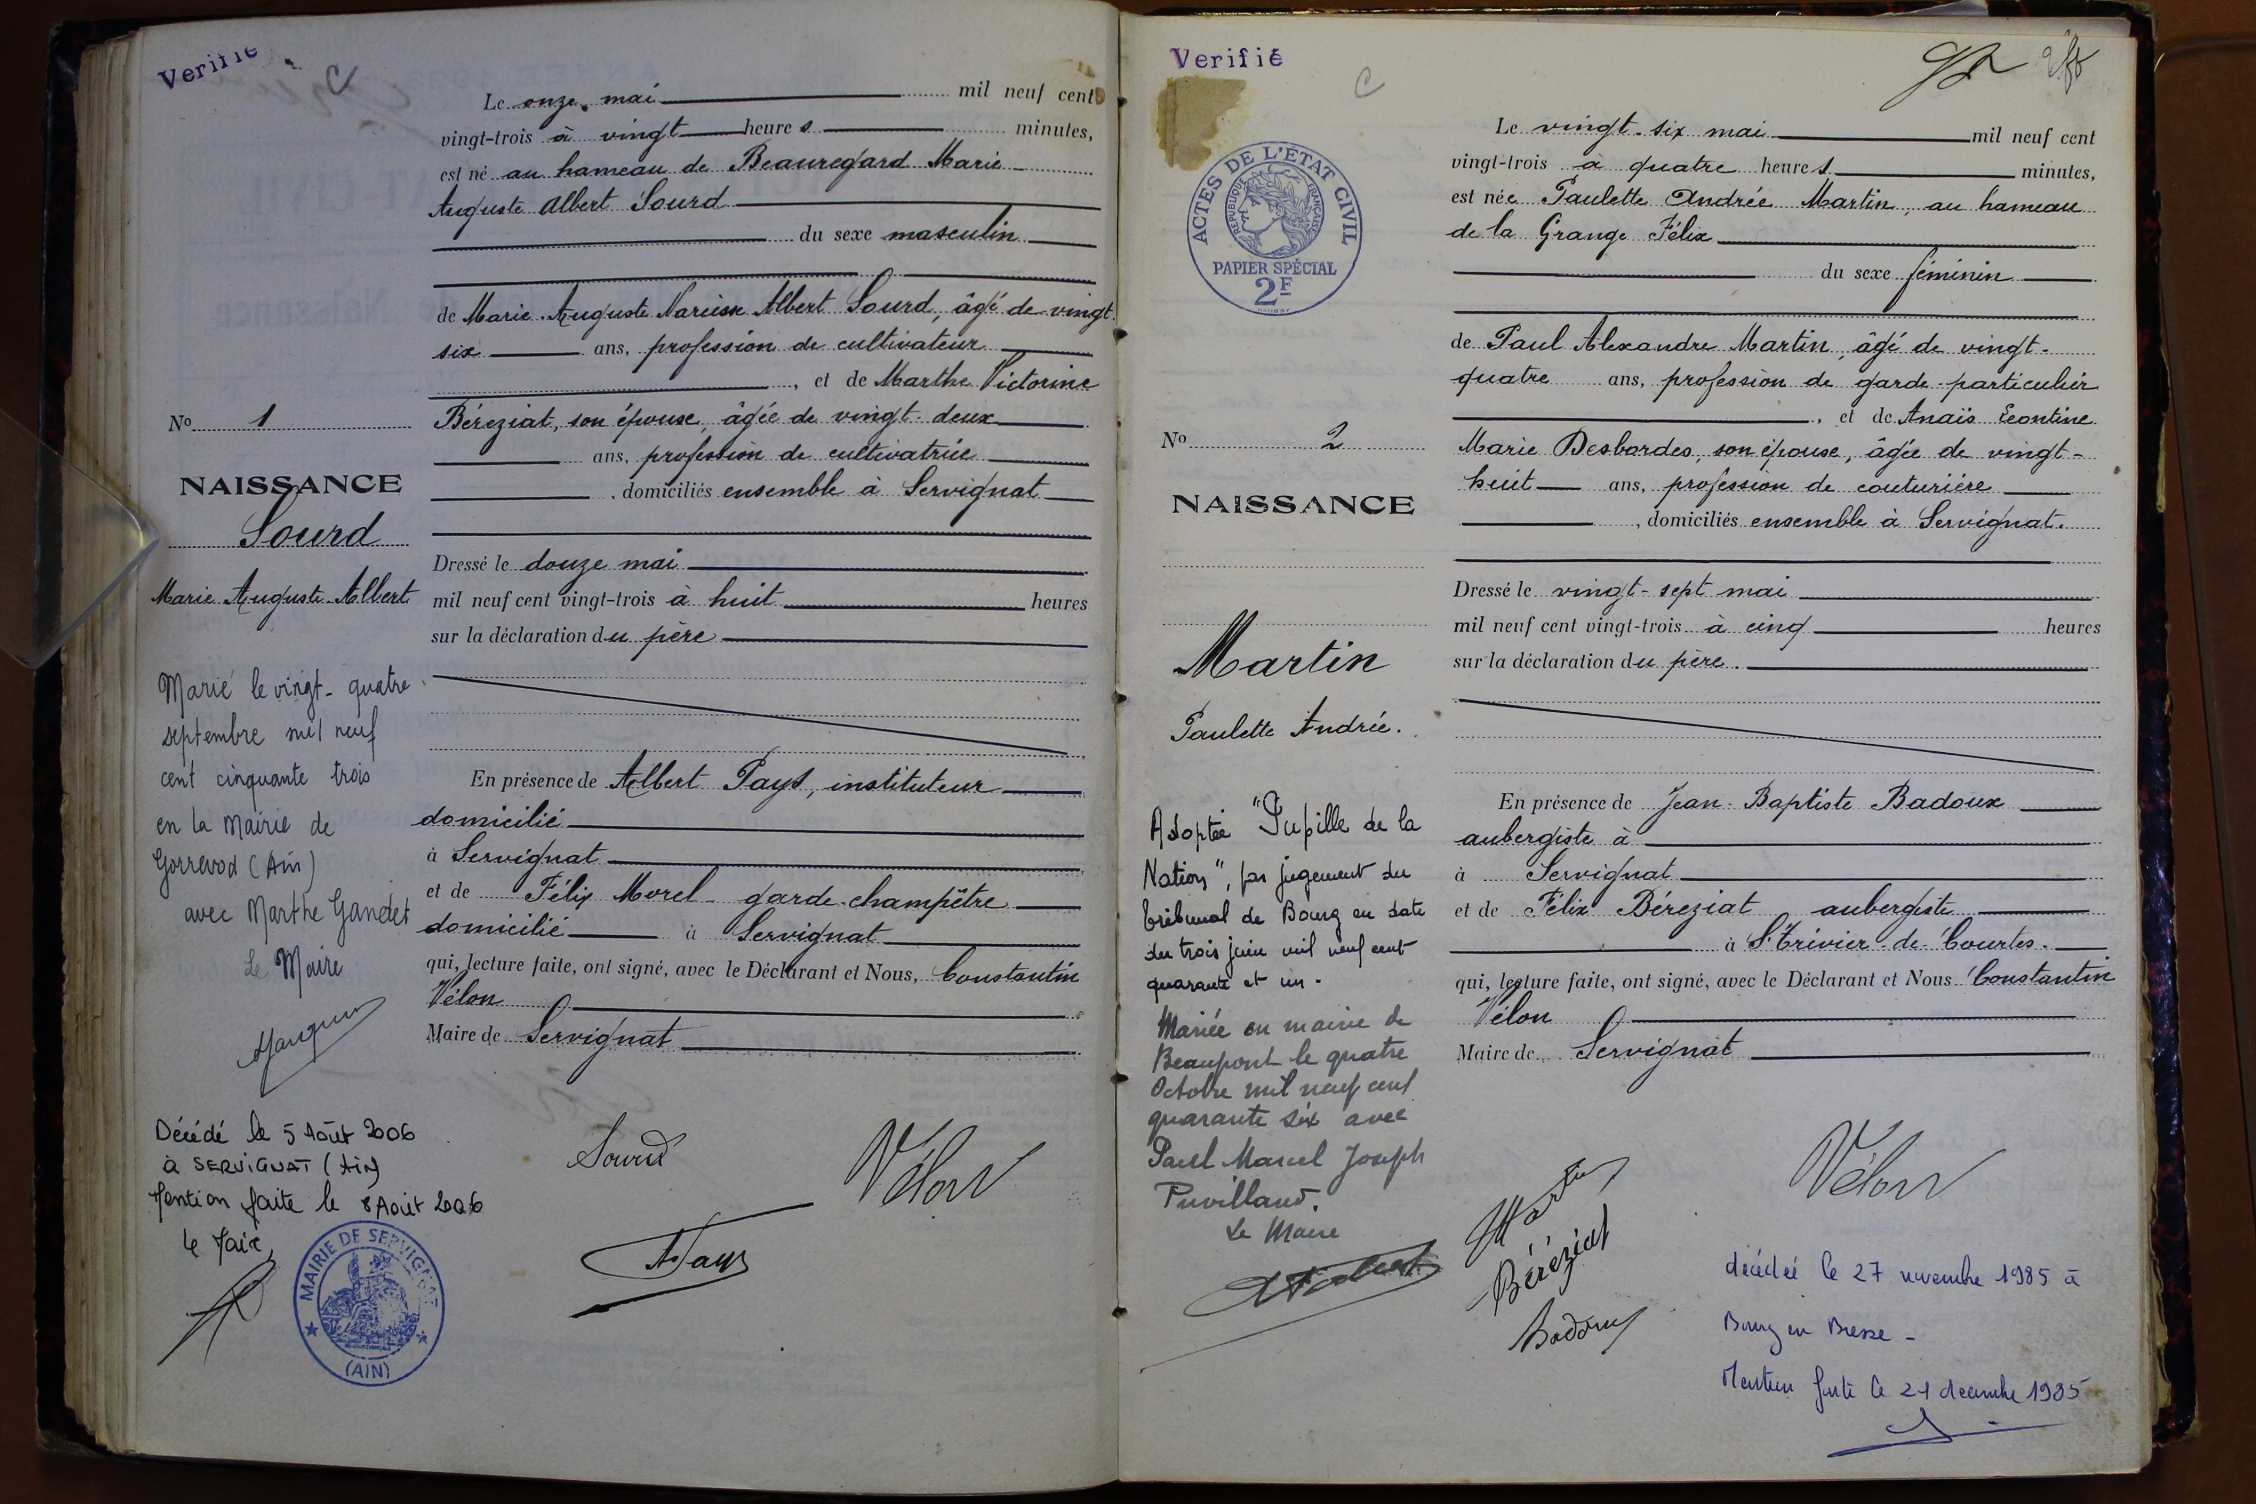 Verifié
Le onze mai mil neuf cent
vingt-trois à vingt heures minutes,
est né au hameau de Beauregard Marie
Auguste Albert Sourd
du sexe masculin
de Marie Auguste Narcisse Albert Sourd, âgé de vingt
six ans, profession de cultivateur
, et de Marthe Victorine
Béreziat, son épouse, âgée de vingt-deux
ans, profession de cultivatrice
, domiciliés ensemble à Servignat
Dressé le douze mai
mil neuf cent vingt-trois à huit heures
sur la déclaration du père
En présence de Albert Pays, instituteur
domicilié
à Servignat
et de Félix Morel garde-champêtre
domicilié à Servignat
qui, lecture faite, ont signé, avec le Déclarant et Nous, Constantin
Vélon
Maire de Servignat
Sourd
Vélon
A Pays
No 1
NAISSANCE
Sourd
Marie Auguste Albert
Marié le vingt-quatre
septembre mil neuf
cent cinquante trois
en la Mairie de
Gorrevod (Ain)
avec Marthe Gandet
Le Maire
Décédé le 5 Août 2006
à SERVIGNAT (Ain)
Mention faite le 8 Août 2006
Le Maire,
MAIRIE DE SERVIGNAT
(AIN)
Verifié
ACTES DE L'ÉTAT CIVIL
RÉPUBLIQUE FRANÇAISE
PAPIER SPÉCIAL
2F
Le vingt-six mai mil neuf cent
vingt-trois à quatre heures minutes,
est née Paulette Andrée Martin, au hameau
de la Grange Félix
du sexe féminin
de Paul Alexandre Martin, âgé de vingt-
quatre ans, profession de garde-particulier
, et de Anaïs Léontine
Marie Desbordes, son épouse, âgée de vingt-
huit ans, profession de couturière
, domiciliés ensemble à Servignat.
Dressé le vingt-sept mai
mil neuf cent vingt-trois à cinq heures
sur la déclaration du père.
En présence de Jean-Baptiste Badoux
aubergiste à
à Servignat
et de Félix Béreziat aubergiste
à St Trivier-de-Courtes.
qui, lecture faite, ont signé, avec le Déclarant et Nous Constantin
Vélon
Maire de Servignat
Vélon
Martin
Béréziat
Badoux
décédée le 27 novembre 1985 à
Bourg en Bresse -
Mention faite le 21 décembre 1985
No 2
NAISSANCE
Martin
Paulette Andrée.
Adoptée "Pupille de la
Nation", par jugement du
tribunal de Bourg en date
du trois juin mil neuf cent
quarante et un.
Mariée en mairie de
Beaupont le quatre
Octobre mil neuf cent
quarante six avec
Paul Marcel Joseph
Puvilland.
Le Maire